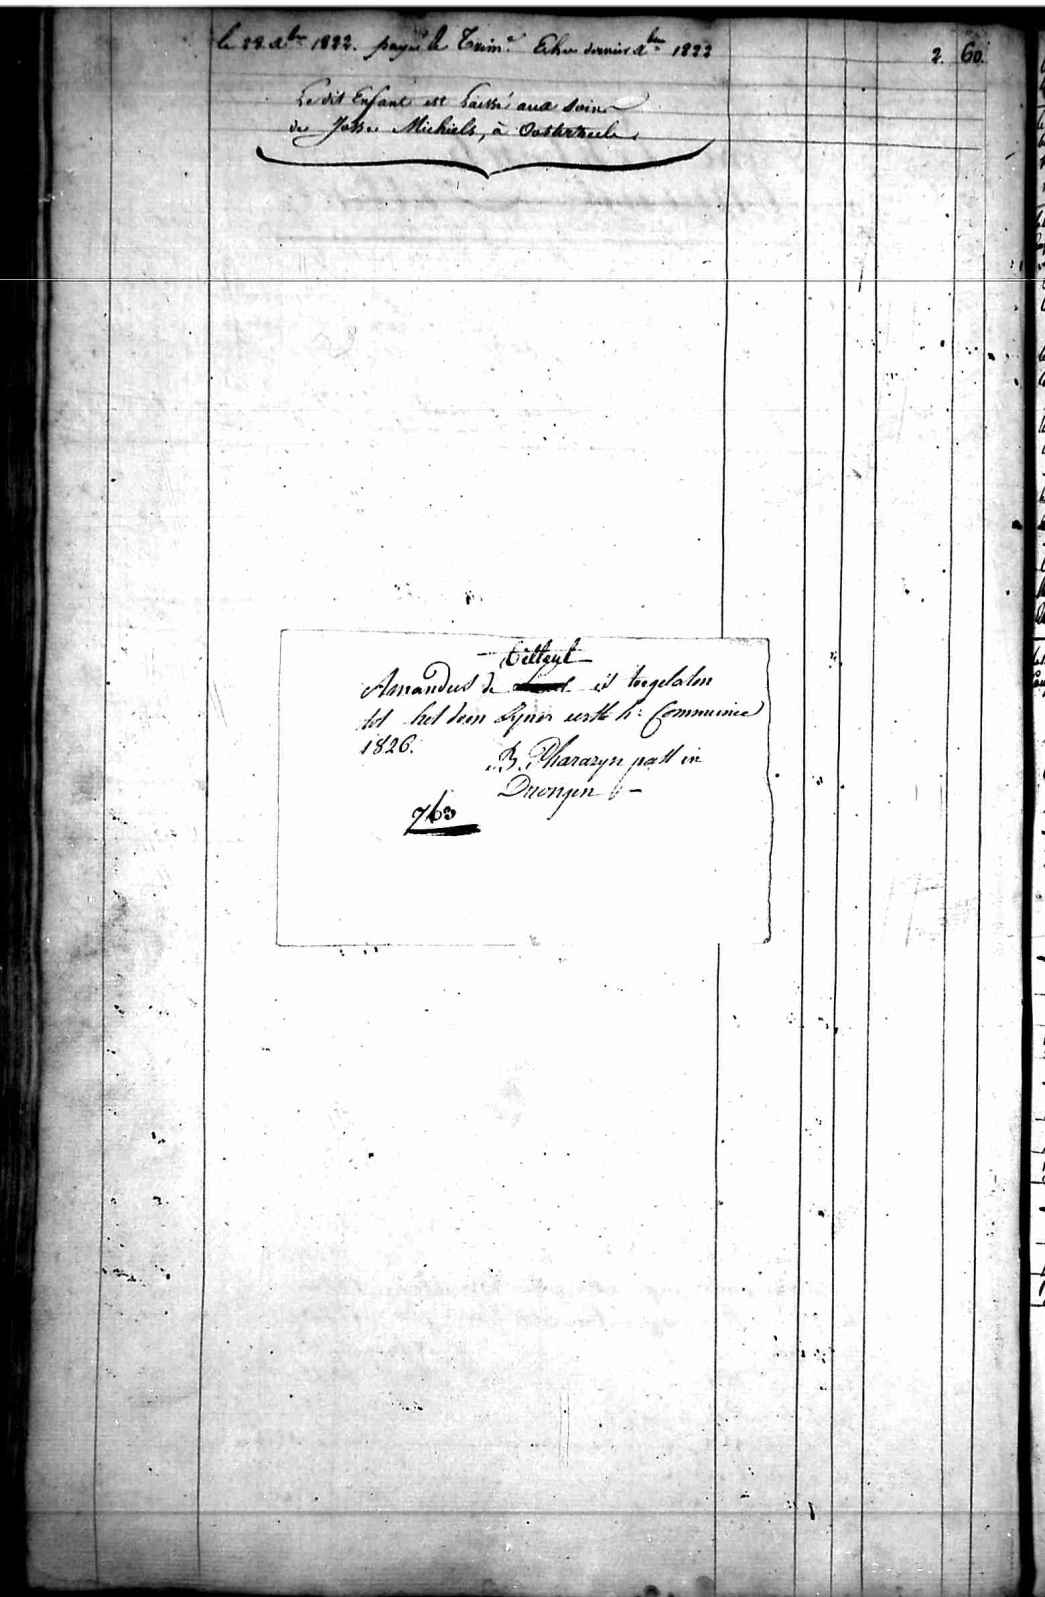 le 28 Xbre 1822. payé le Trime. Echu dernier Xbre 1822 2. 60.
Le dit Enfant est Laissé aux soins
de Josse Michiels, à Oosterzeele.
Tilleul
Amandus de is toegelaten
tot het doen Synor eerste h: Communie
1826.
B. Pharazyn past in
Drongen
763